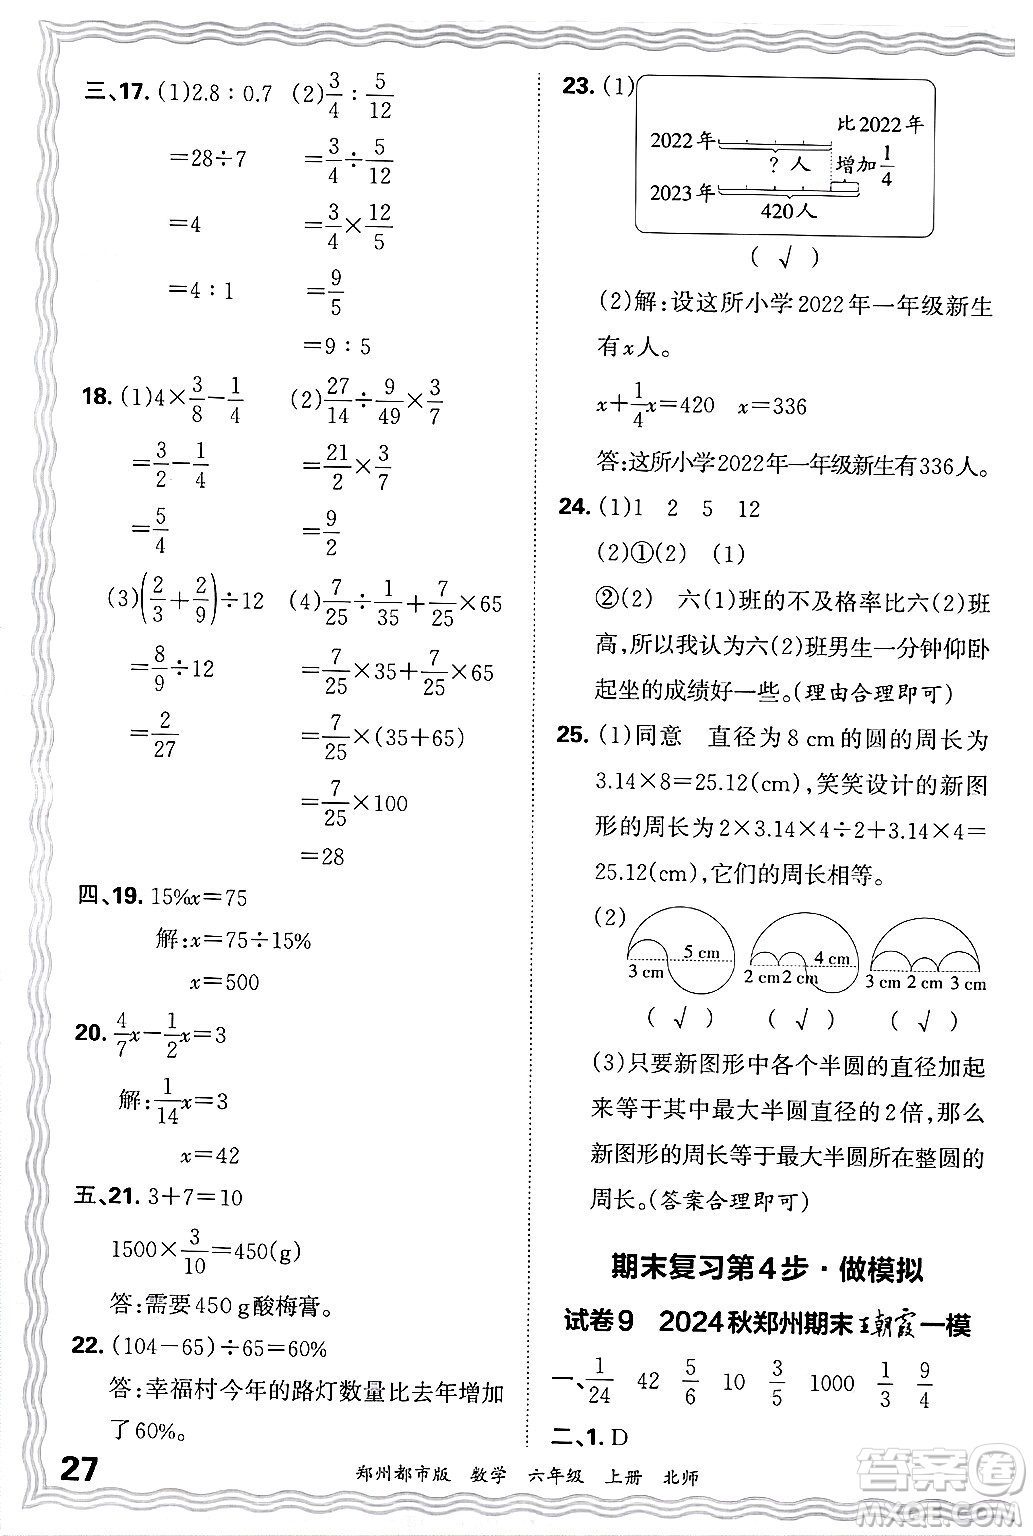 三、17. (1)2.8∶0.7 (2)3/4∶5/12
=28÷7 =3/4÷5/12
=4 =3/4×12/5
=4∶1 =9/5
=9∶5
18. (1)4×3/8-1/4 (2)27/14÷9/49×3/7
=3/2-1/4 =21/2×3/7
=5/4 =9/2
(3)(2/3+2/9)÷12 (4)7/25÷1/35+7/25×65
=8/9÷12 =7/25×35+7/25×65
=2/27 =7/25×(35+65)
=7/25×100
=28
四、19. 15%x=75
解:x=75÷15%
x=500
20. 4/7x-1/2x=3
解:1/14x=3
x=42
五、21. 3+7=10
1500×3/10=450(g)
答:需要450 g酸梅膏。
22. (104-65)÷65=60%
答:幸福村今年的路灯数量比去年增加
了60%。
23. (1)
比2022年
2022年
? 人 增加1/4
2023年
420人
( √ )
(2)解:设这所小学2022年一年级新生
有x人。
x+1/4x=420 x=336
答:这所小学2022年一年级新生有336人。
24. (1)1 2 5 12
(2)①(2) (1)
②(2) 六(1)班的不及格率比六(2)班
高,所以我认为六(2)班男生一分钟仰卧
起坐的成绩好一些。(理由合理即可)
25. (1)同意 直径为8 cm的圆的周长为
3.14×8=25.12(cm),笑笑设计的新图
形的周长为2×3.14×4÷2+3.14×4=
25.12(cm),它们的周长相等。
(2)
5 cm 4 cm
3 cm 2 cm 2 cm 3 cm 2 cm 3 cm
( √ ) ( √ ) ( √ )
(3)只要新图形中各个半圆的直径加起
来等于其中最大半圆直径的2倍,那么
新图形的周长等于最大半圆所在整圆的
周长。(答案合理即可)
期末复习第4步·做模拟
试卷9 2024秋郑州期末王朝霞一模
一、1/24 42 5/6 10 3/5 1000 1/3 9/4
二、1. D
27
郑州都市版 数学 六年级 上册 北师
答案圈
MXQE.COM